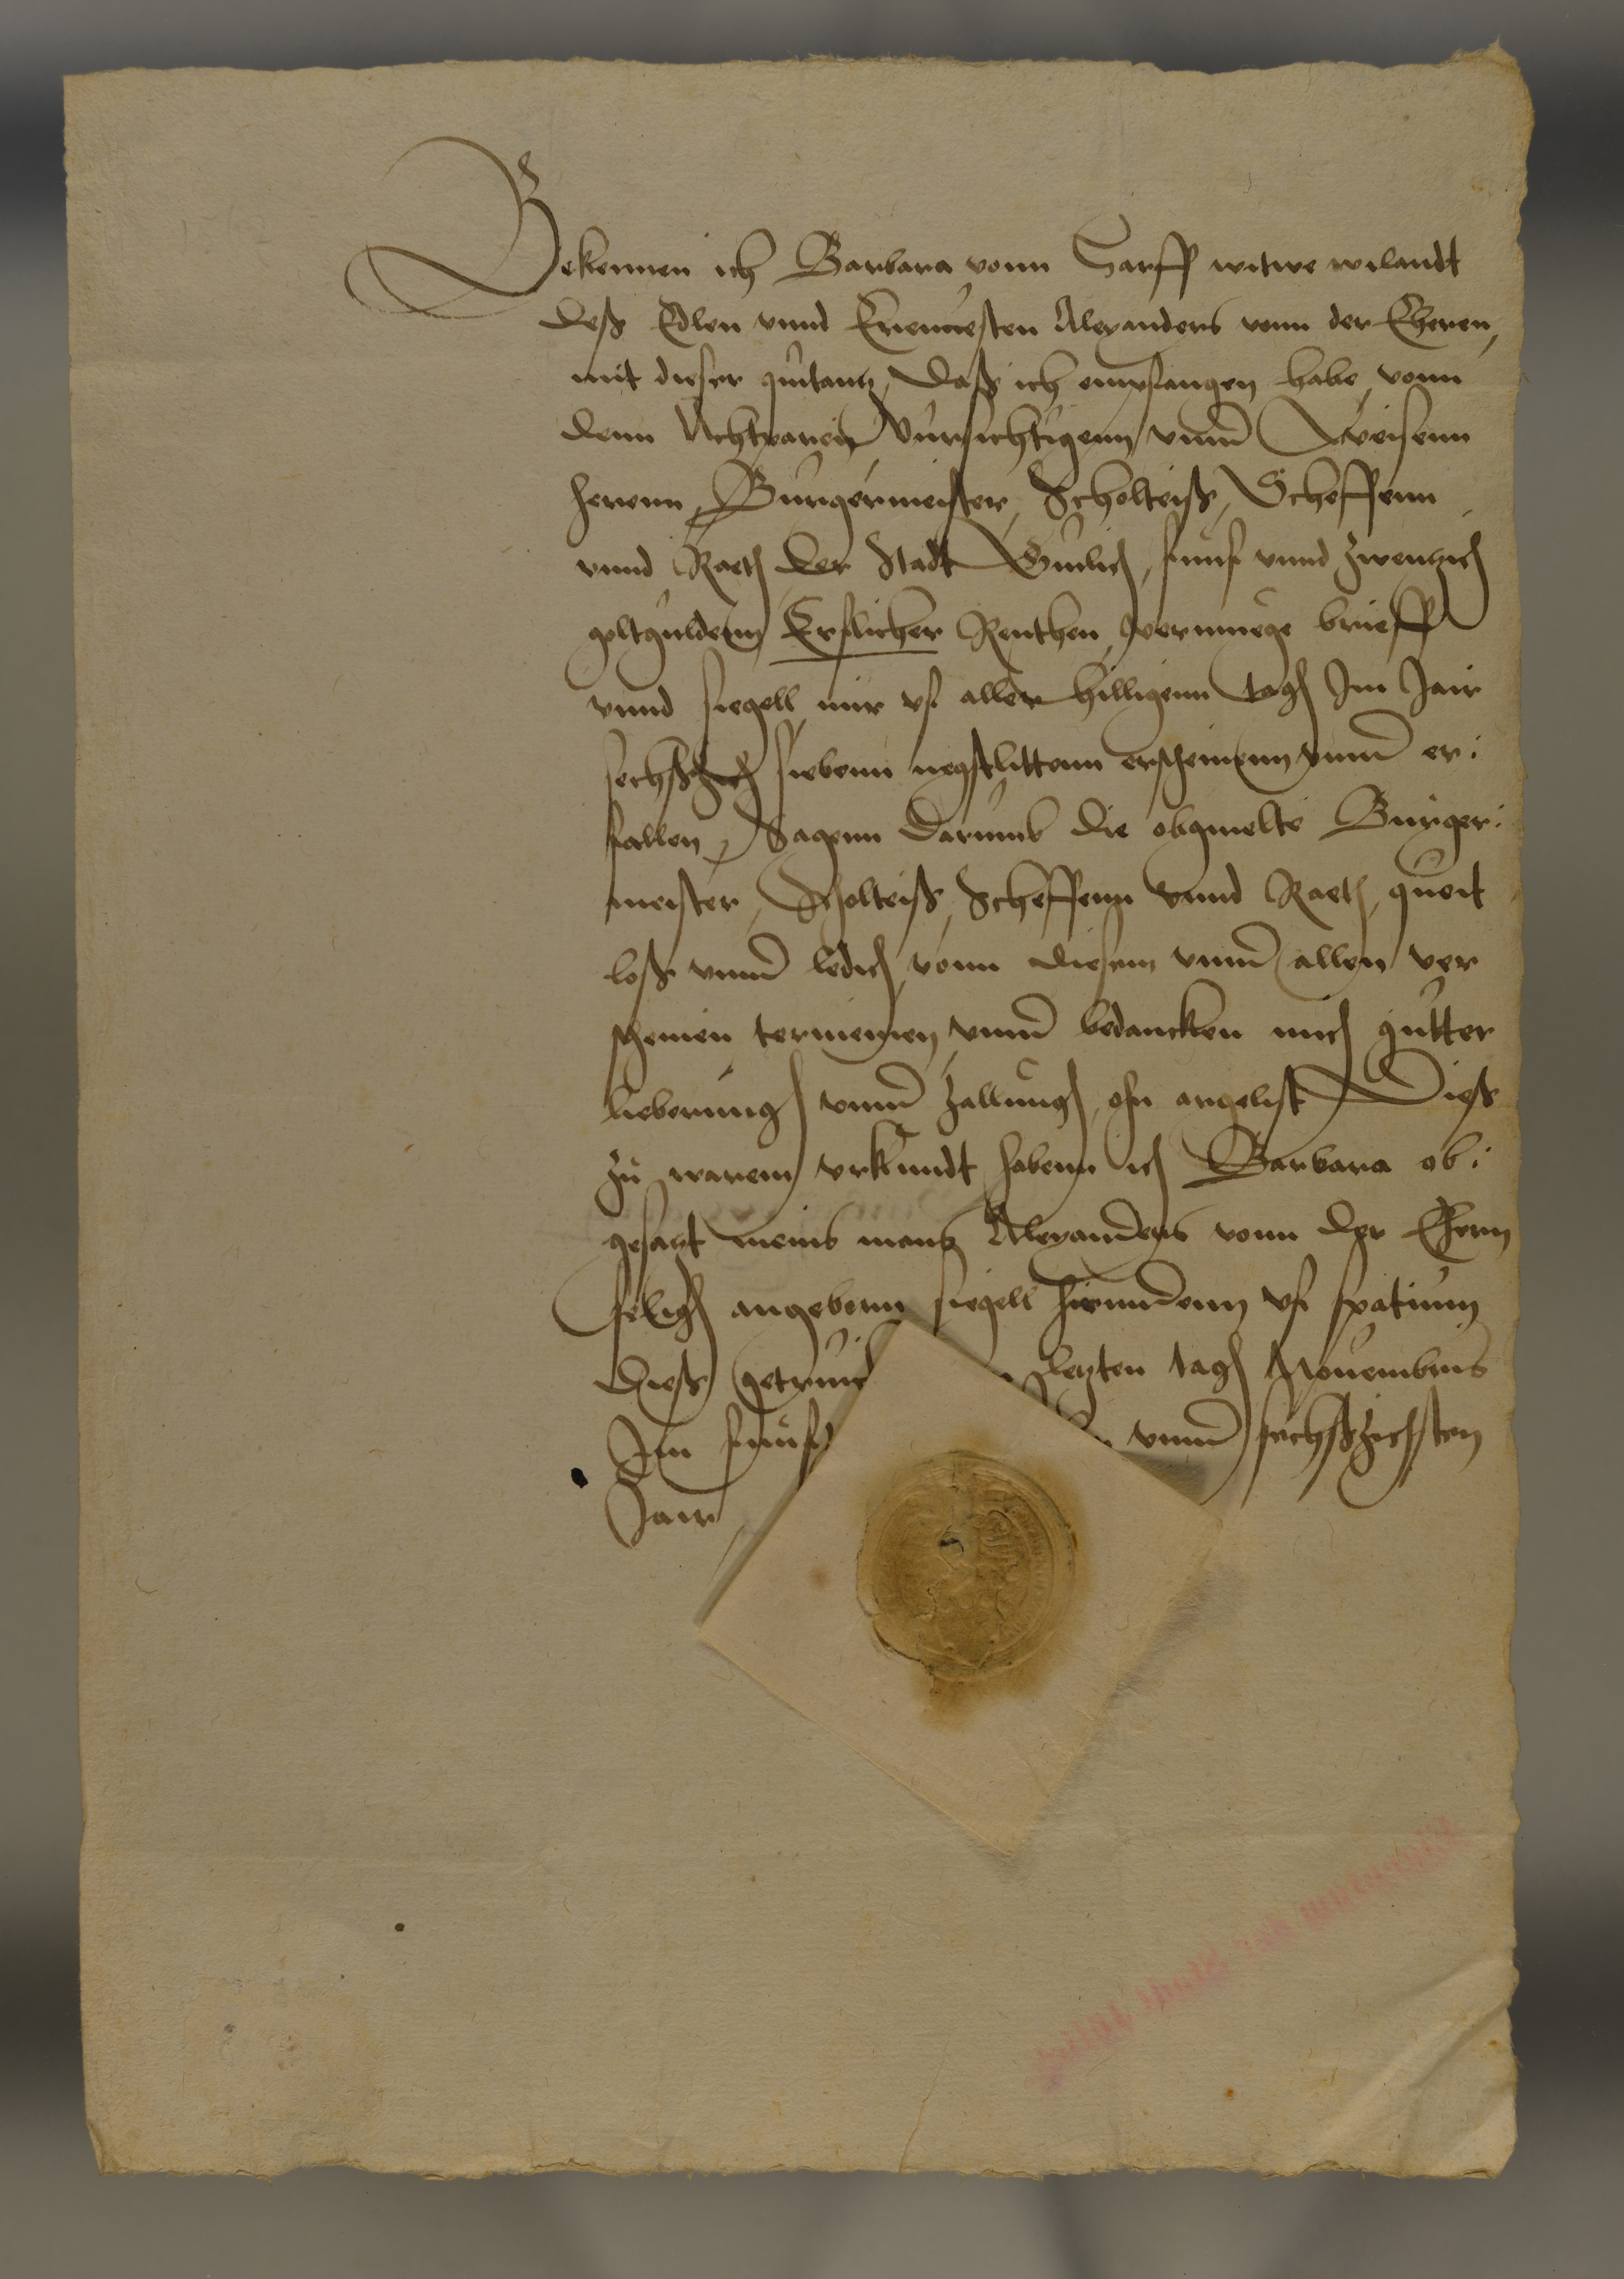 Bekennen ich Barbara vonn Harff witwe wilandt
deß Edlen vnnd Erenuesten Alexanders vonn der Eheren,
mit dieser quitantz, daß ich empfangen habe, vonn
denn Achtparen Vursichtigenn vnnd Weisenn
herenn, Burgermeister, Scholteiß, Scheffenn
vnnd Raeth der Stadt Guilich, funff vnnd zwentzich
goltguldenn Erflicher Renthen, vermuege brieff
vnnd siegell mir vf aller hilligenn tagh Im Jair
sechßzich siebenn negstlittenn erscheinenn vnnd er:
fallen, Sagenn darumb die obgmelte Burger:
meister, Scholteiß, Scheffenn vnnd Raeth, queit
loß vnnd ledich, vonn diesem vnnd allen ver
scheinen termeinen, vnnd bedancken mich gutter
lieberungh vnnd zallungh, ohn argelist Dieß
zu warem vrkundt habenn ich Barbara ob:
gesagt meins mans Alexanders vonn der Ehern
seligh angebornn siegell hieundenn vf spatium
dieß getruck letzten tagh Nouembris
Im funff vnnd sechßzichsten
Jair